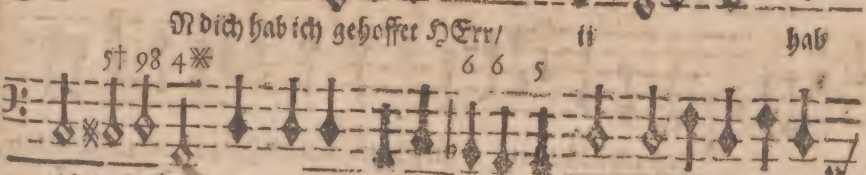 N dich hab ich gehoffet HErr/ ij hab
5† 98 4※ 6 6 5